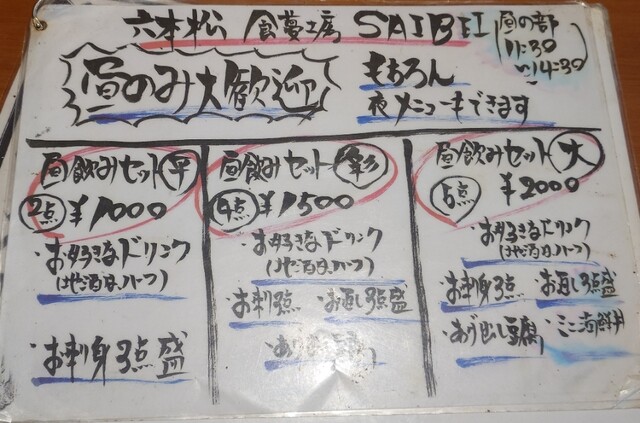 六本松 食夢工房 SAIBEI
昼の部
11:30
〜14:30
昼のみ大歓迎
もちろん
夜メニューもできます
昼飲みセット 平
2点 ¥1000
・お好きなドリンク
(地酒は、ハーフ)
・お刺身3点盛
昼飲みセット 彩
4点 ¥1500
・お好きなドリンク
(地酒は、ハーフ)
・お刺3点 ・お通し3点盛
昼飲みセット 大
5点 ¥2000
・お好きなドリンク
(地酒は、ハーフ)
・お刺身3点 ・お通し3点盛
・あげ出し豆腐 ・ミニ海鮮丼